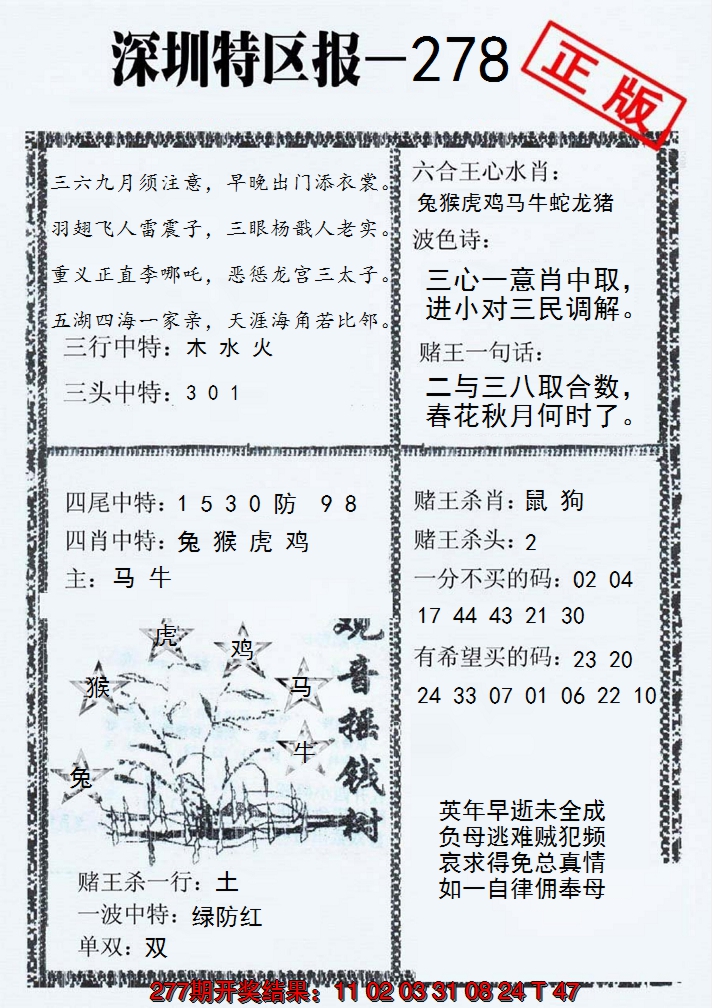 深圳特区报－278
正版
三六九月须注意，早晚出门添衣裳。
羽翅飞人雷震子，三眼杨戬人老实。
重义正直李哪吒，恶惩龙宫三太子。
五湖四海一家亲，天涯海角若比邻。
三行中特：木 水 火
三头中特：3 0 1
六合王心水肖：
兔猴虎鸡马牛蛇龙猪
波色诗：
三心一意肖中取，
进小对三民调解。
赌王一句话：
二与三八取合数，
春花秋月何时了。
四尾中特：1 5 3 0 防 9 8
四肖中特：兔 猴 虎 鸡
主：马 牛
虎
鸡
猴
马
牛
兔
观音摇钱树
赌王杀一行：土
一波中特：绿防红
单双：双
赌王杀肖：鼠 狗
赌王杀头：2
一分不买的码：02 04
17 44 43 21 30
有希望买的码：23 20
24 33 07 01 06 22 10
英年早逝未全成
负母逃难贼犯频
哀求得免总真情
如一自律佣奉母
277期开奖结果：11 02 03 31 08 24 T 47